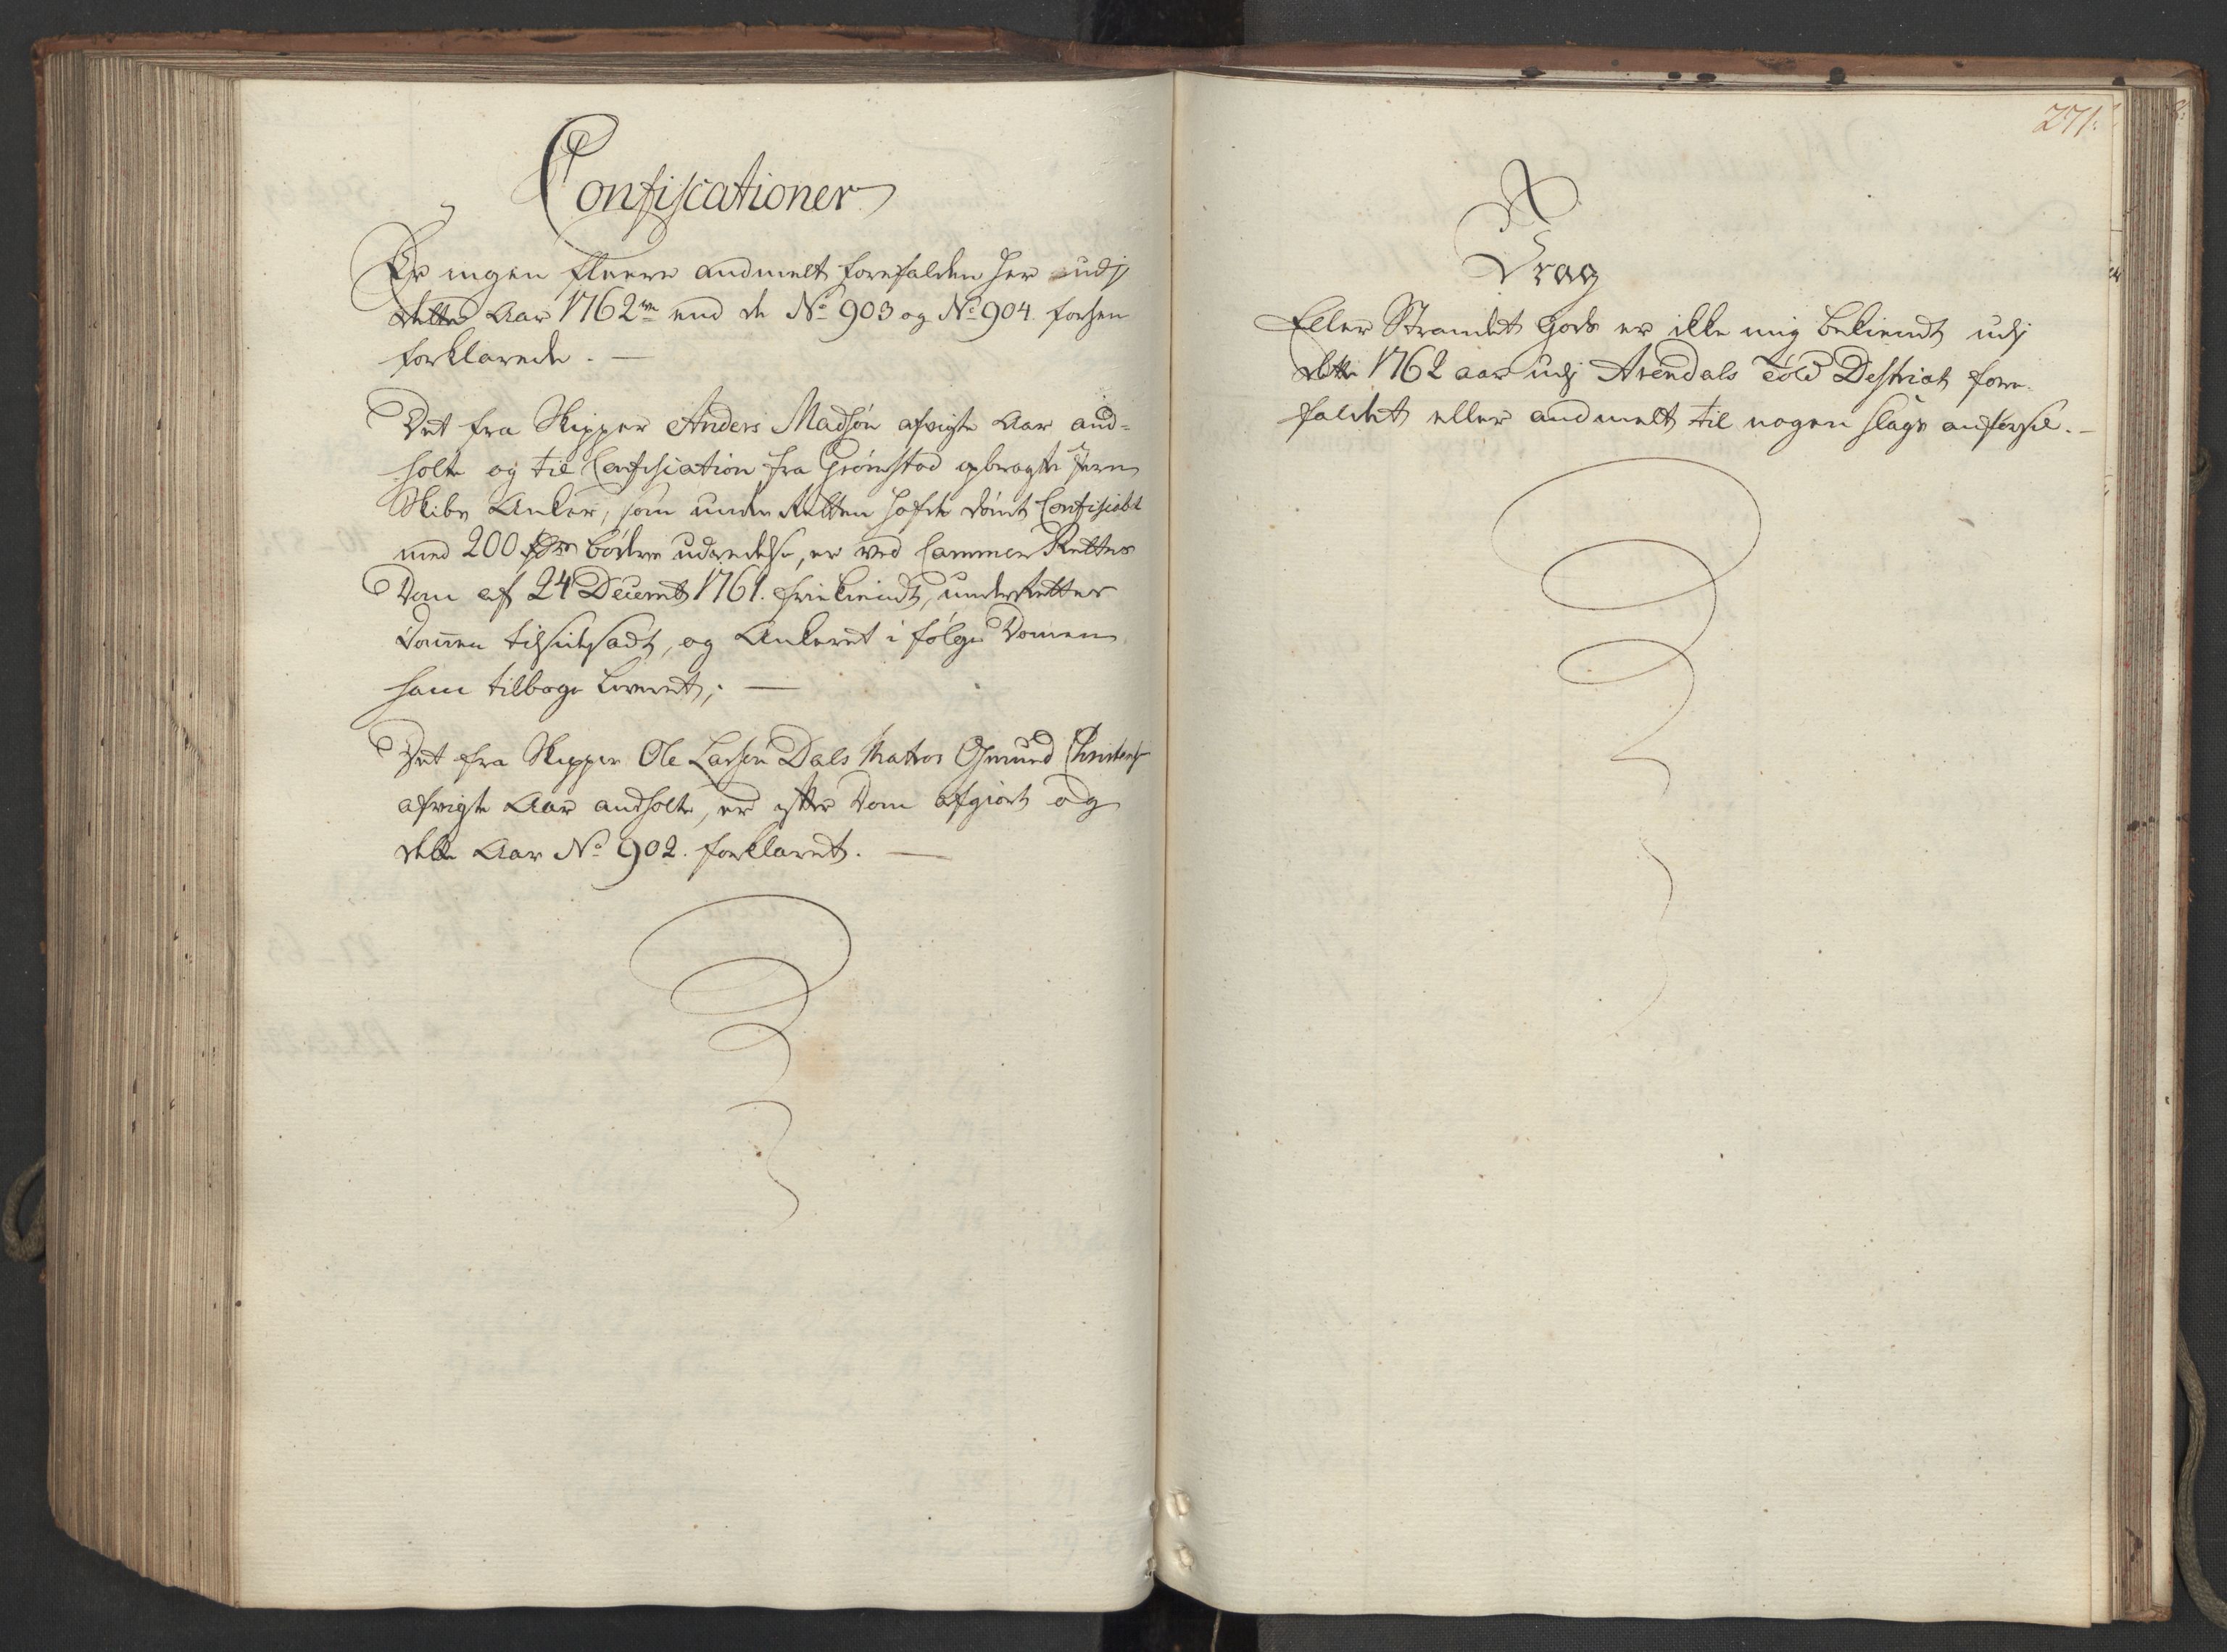 Confiscationer
Er ingen fleere andmelt forefalden her udj
dette Aar 1762 end de No 903 og No 904 forhen
forklarede. —
Det fra Skipper Anders Madsøn afvigte Aar and=
holte og til Confiscation fra Grømstad opbragte Jern
Skibs Anker, som underRetten hafde dømt Confisiabt
med 200 bøders udredelse, er ved Cammer Rettens
Dom af 24 Decemb 1761. friekiendt, underRettes
Dommen tilsidesadt, og Ankeret i følge Dommen
ham tilbage leveret; —
Det fra Skipper Ole Larsen Dals Matros Osmund Christens
afvigte Aar andholte, er efter Dom afgiort og
dette Aar No 902. forklaret. —
271:
Vrag
Eller Strandet Gods er ikke mig bekiendt udj
dette 1762 aar udj Arendals Told Destrict fore=
faldet eller andmelt til nogen slags anførsel. —